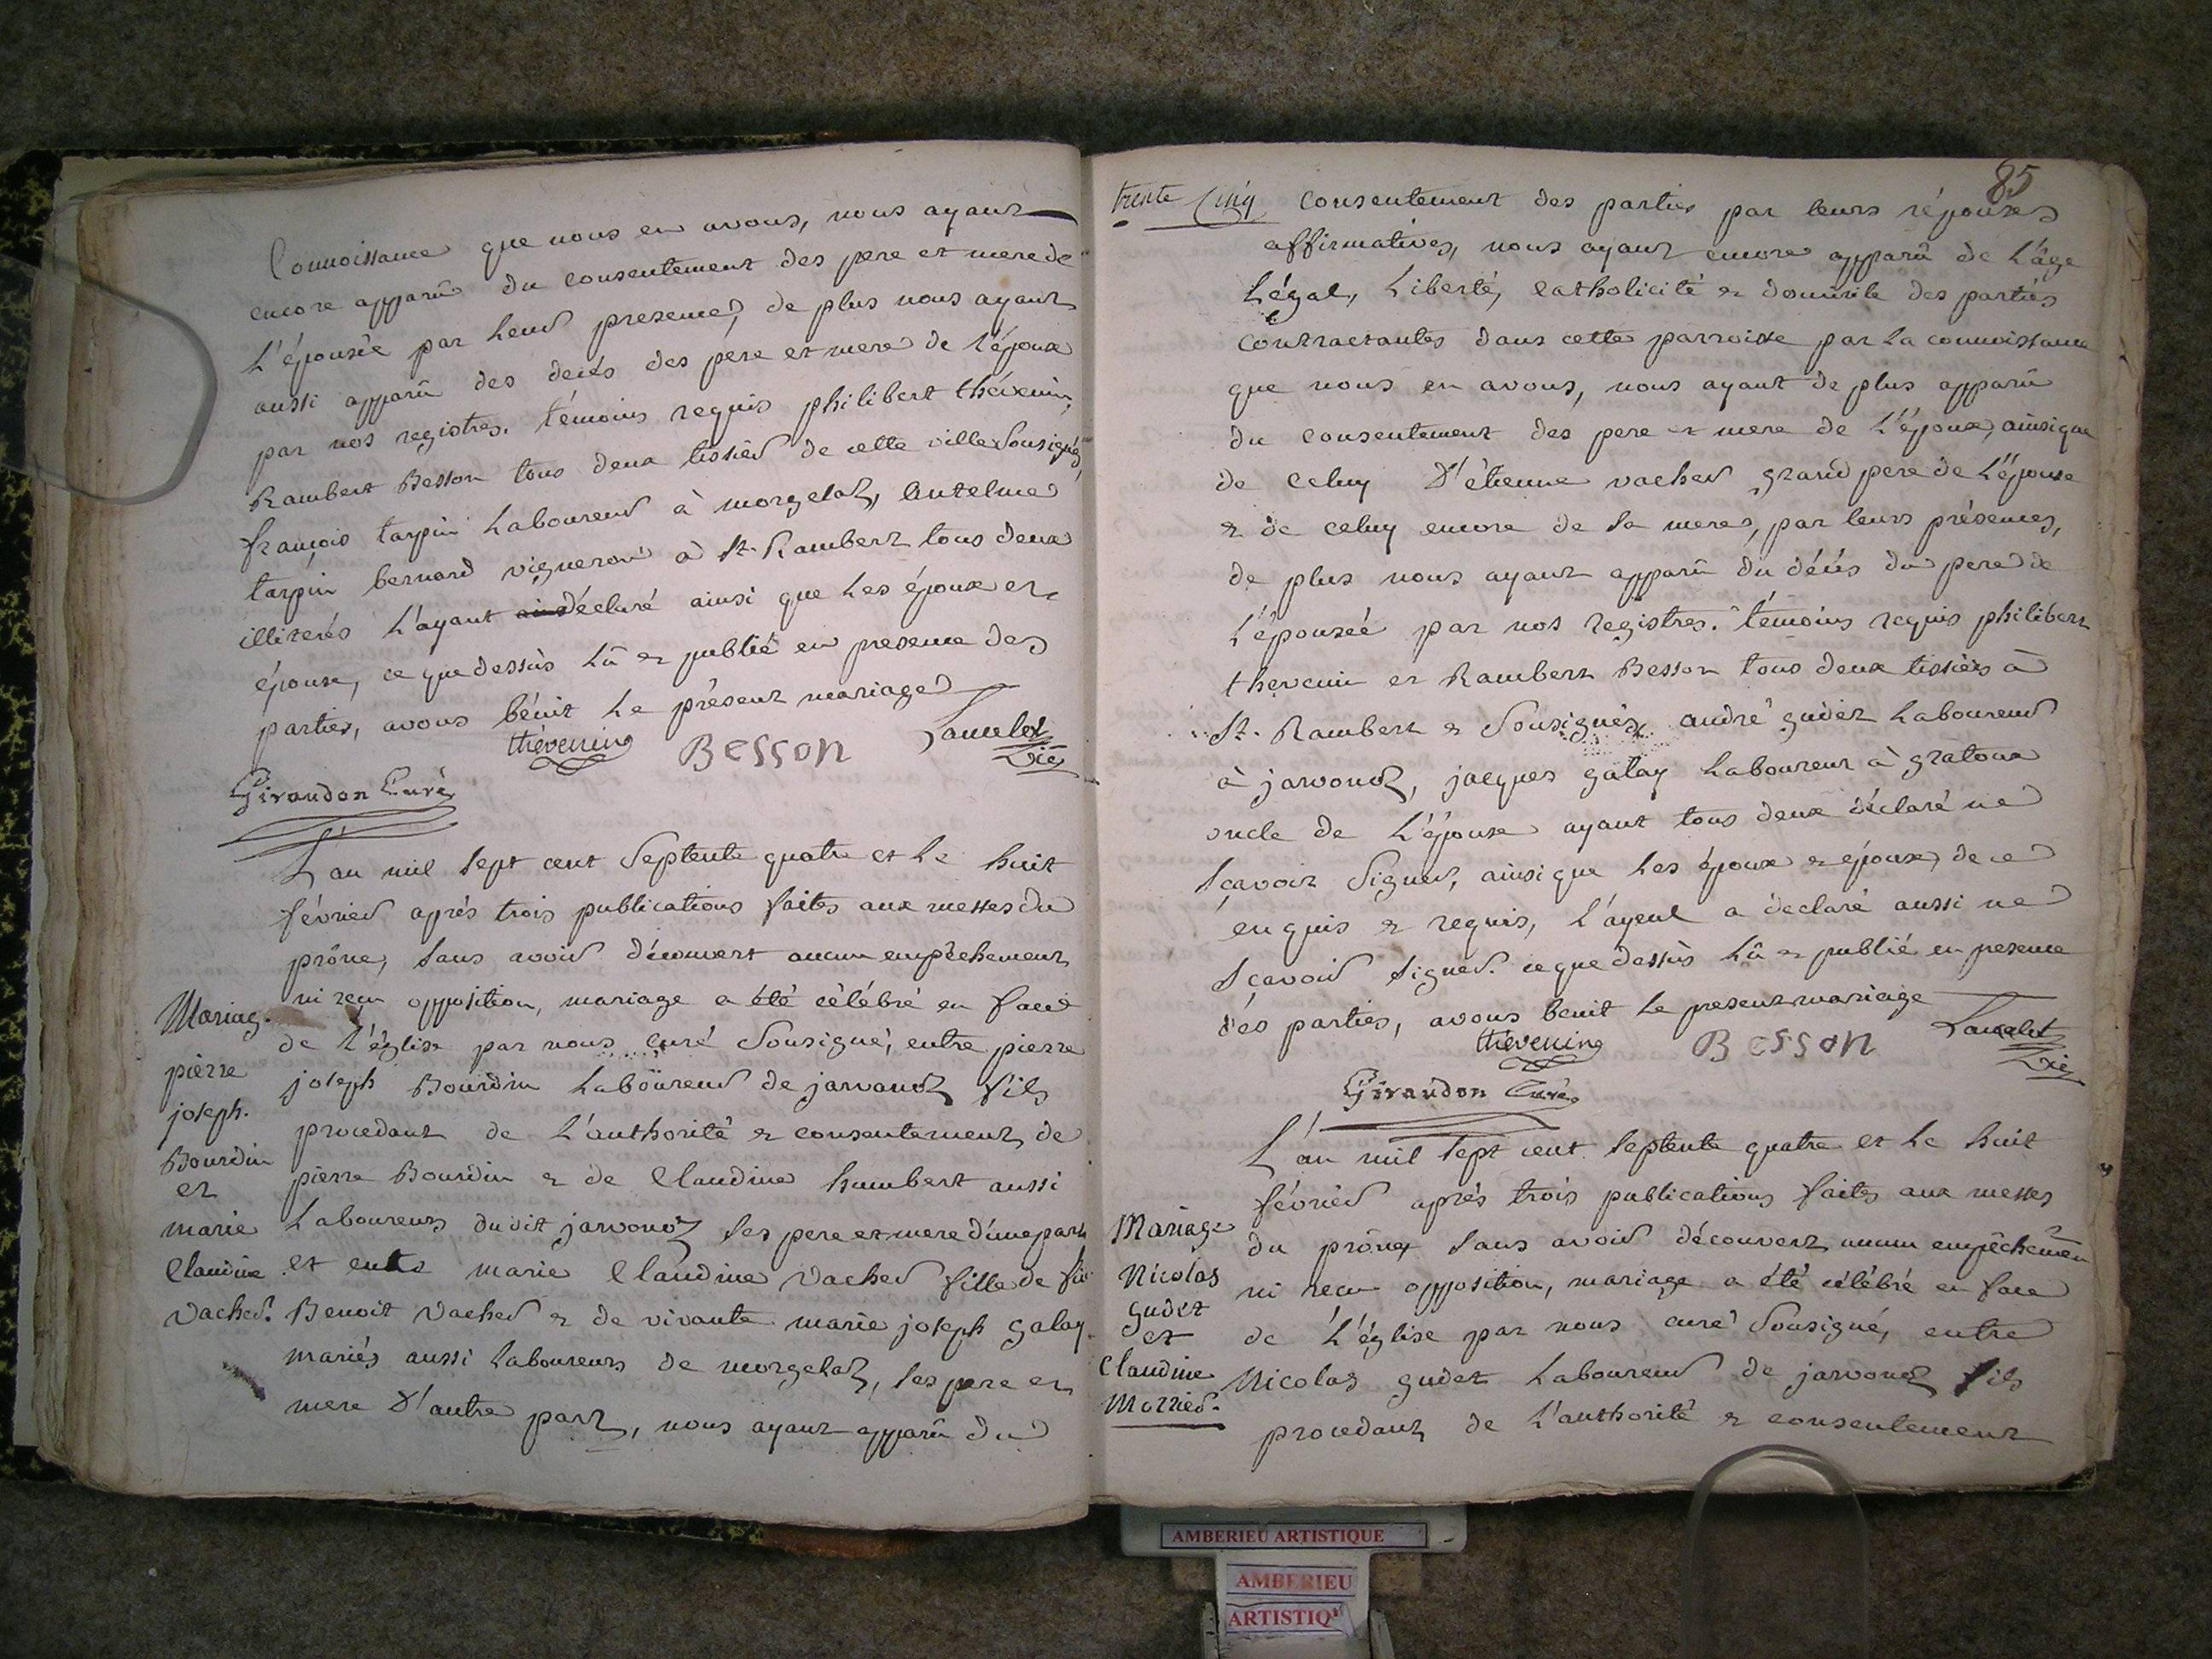 Connoissance que nous en avons, nous ayant
encore apparû du consentement des pere et mere de
L'épousée par leur presence, de plus nous ayant
aussi apparû des decés des pere et mere de l'époux
par nos registres. témoins requis philibert thévenin,
Rambert Besson tous deux tissier de cette ville sousignés,
françois tarpin Laboureur à morgelaz, Antelme
tarpin bernard vigneron à St. Rambert tous deux
illiterés l'ayant déclaré ainsi que Les époux et
épouse, ce que dessùs Lû et publié en presence des
parties, avons bénit Le présent mariage
thévening Besson
Girandon Curé
L'an mil sept cent Septente quatre et le huit
février aprés trois publications faites aux messes du
prône, sans avoir découvert aucun empêchement
ni reçu opposition, mariage a été célébré en face
Mariag. de L'église par nous curé Sousigné, entre pierre
pierre joseph Bourdin Laboureur de jarvonoz fils
joseph. procedant de L'authorité et consentement de
Bourdin pierre Bourdin et de Claudine humbert aussi
et
marie Laboureurs dudit jarvonoz ses pere et mere d'une part
Claudine et entre marie Claudine Vacher fille de feu
Vacher. Benoit Vacher et de vivante marie joseph galay
mariés aussi Laboureurs de morgelaz, ses pere et
mere d'autre part, nous ayant apparû du
85
trente Cinq consentement des parties par leurs réponses
affirmatives, nous ayant encore apparû de L'âge
Légal, Liberté, catholicité et domicile des parties
contractantes dans cette parroisse par la connoissance
que nous en avons, nous ayant de plus apparû
du consentement des pere et mere de L'époux, ainsi que
de celuy d'étienne vacher grand pere de L'épouse
et de celuy encore de sa mere, par leurs présences,
de plus nous ayant apparû du décés du pere de
L'épousée par nos registres. témoins requis philibert
thevenin et Rambert Besson tous deux tissiers à
St. Rambert et Sousignés, andré gudet Laboureur
à jarvonoz, jacques galay Laboureur à gratoux
oncle de L'épouse ayant tous deux déclaré ne
sçavoir Signer, ainsi que Les époux et épouse, de ce
enquis et requis, L'ayeul a declaré aussi ne
sçavoir signer. ce que dessùs Lû et publié en presence
des parties, avons benit Le present mariage
thévening Besson
Girandon Curé
L'an mil sept cent septente quatre et le huit
février aprés trois publications faites aux messes
Mariage du prône sans avoir découvert aucun empêchemen
Nicolas ni reçu opposition, mariage a été célébré en face
gudet
et de L'église par nous curé Sousigné, entre
Claudine Nicolas gudet Laboureur de jarvonoz fils
Morrier. procedant de L'authorité et consentement
AMBERIEU ARTISTIQUE
AMBERIEU
ARTISTIQ